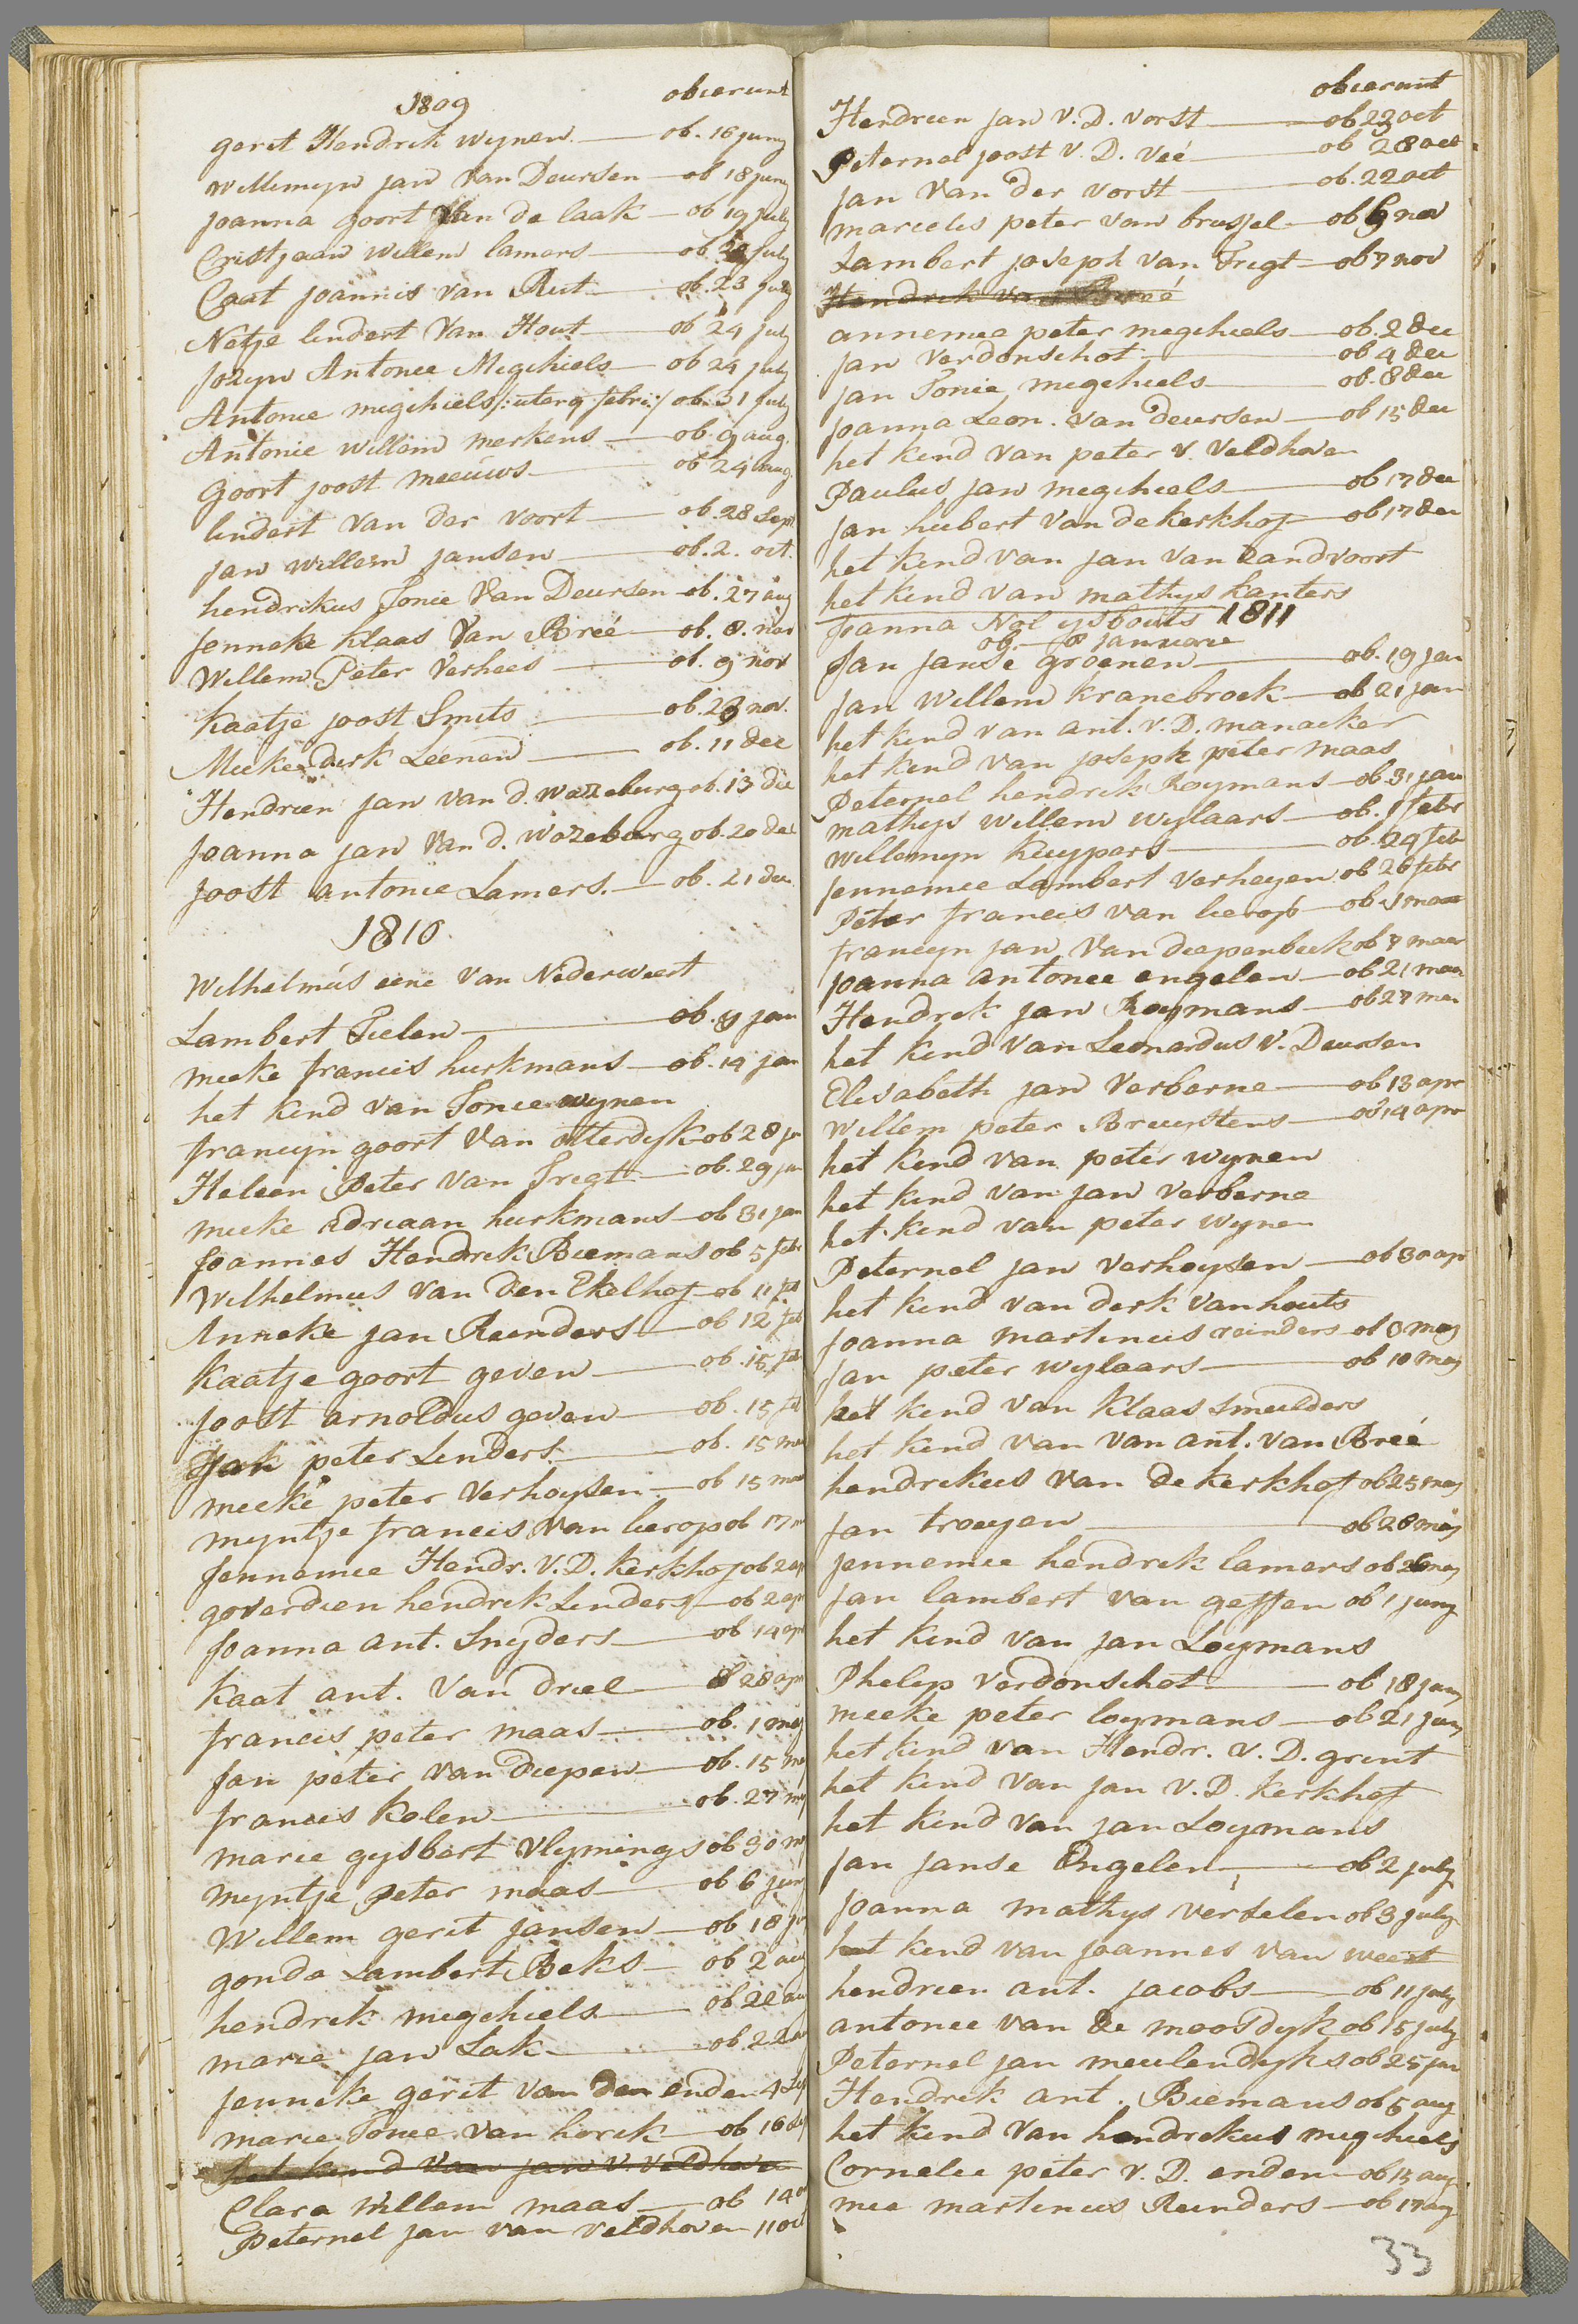 1809 obierunt
gerit Hendrik wynen ob. 16 juny
Willemyn jan Van Deursen ob 18 juny
joanna goort Van de laak ob 19 july
Cristjaan Willem lamers ob july
Caat joannis van Rut ob. 23 july
Netje lindert Van Hout ob 24 july
Jozyn Antonie Megchiels ob 24 july
Antonie migchiels /: uterq febri :/ ob. 31 july
Antonie willem merkens ob. 9 aug.
Goort joost meeuws ob 24 aug.
lindert Van der voort ob. 28 sep.
jan willem jansen ob. 2. oct.
hendrikus Tonie Van Deursen ob. 27 aug
Jenneke Klaas Van Breé ob. 8. nov
Willem Peter Verhees ob. 9 nov
Kaatje joost Smits ob. 29 nov.
Mieke derk Leenen ob. 11 dec
Hendrien jan van d. Wazeburg ob. 13 dec
Joanna jan Van d. Wozeburg ob. 20 dec
Joost antonie Lamers. ob. 21 dec
1810.
Wilhelmus eene van Nederweert
Lambert Tielen ob. 9 jan
mieke francis hurkmans ob. 14 jan
het kind van Tonie wynen
francyn goort Van otterdyk ob 28 ja
Heleen Peter Van Tregt ob. 29 jan
mieke Adriaan hurkmans ob 31 jan
Joannes Hendrik Biemans ob 5 feb
Wilhelmus Van den Ekelhof ob 11 feb
Anneke jan Reinders ob 12 feb
Kaatje goort geven ob. 15 feb
joost arnoldus geven ob. 15 feb
Jan peter Linders ob. 15 ma
mieke peter Verhoysen ob 15 maa
myntje francis Van lierop ob 17 m
Jennemie Hendr. V. D. Kerkhof ob 2 ap
goverdien hendrik Linders ob 2 apr
Joanna ant. Snyders ob 14 apr
Kaat ant. Van driel 28 apr
francis peter maas ob. 1 mey
Jan peter Van diepen ob. 15 m
francis Kolen ob. 27 my
marie gysbert Vlymings ob 30 m
myntje peter maas ob 6 juny
Willem gerit jansen ob 18 ju
gonda Lambert Beks ob 2 aug
hendrik migchiels ob 22 au
marie jan Lak ob. 22 a
jenneke gerit van den enden 4 sep
marie Tonie van horik ob 16
het kind van jan v. Veldhoven
Clara Willem maas ob 14 o
Peternel jan van Veldhoven 11 oct
obierunt
Hendrien jan V. D. Vorst ob 23 oct
Peternel joost V. D. Veé ob 28 oct
jan Van der Vorst ob. 22 oct
marielis peter van brussel ob 6 nov
Lambert joseph van Tregt ob 7 nov
Hendrik van
annemie peter megchiels ob. 2 dec
jan Verdonschot ob 4 dec
jan Tonie megchiels ob. 8 dec
joanna Leon. Van deursen ob 15 dec
het kind Van peter v. Veldhoven
Paulus jan megchiels ob 17 dec
jan hubert Van de Kerkhof ob 17 dec
het kind van jan van Zandvoort
het kind van mathys Kanters
Joanna Nol ysbouts 1811
ob. 8 januarie
Jan janse groenen ob. 19 jan
jan Willem Kranebroek ob 21 jan
het kind van ant. v. D. manacker
het kind van joseph peter maas
Peternel hendrik Roymans ob. 31 jan
mathys Willem Wylaars ob. 1 febr
Willemyn Kuypers ob. 24 feb
Jennemie Lambert Verheyen ob 26 febr
Peter francis Van lierop ob 1 maa
francyn jan Van diepenbeek ob 7 maar
joanna antonie engelen ob 21 maa
Hendrik jan Roymans ob 27 maa
het kind Van Leonardus V. Deursen
Elisabeth jan Verberne ob 13 apr
Willem peter Bruystens ob 14 apr
het kind van peter wynen
het kind van jan Verberne
het kind van peter wynen
Peternel jan Verhoysen ob 30 apr
het kind van derk Van houts
joanna martinus reinders ob 3 mey
jan peter wylaars ob 10 mey
het kind Van Klaas Smulders
het kind van van ant. van Breé
hendrikus Van de Kerkhof ob 25 mey
jan troeyen ob 28 mey
jennemie hendrik lamers ob 26 mey
jan lambert van geffen ob 1 juny
het kind van jan Loymans
Philip Verdonschot ob 18 juny
mieke peter loymans ob 21 juny
het kind van Hendr. v. D. grint
het kind Van jan V. D. Kerkhof
het kind van jan Loymans
jan janse Engelen ob 2 july
joanna mathys Verselen ob 3 july
het kind van joannes van weert
hendrien ant. jacobs ob 11 july
antonie van de moosdyk ob 15 july
Peternel jan meulendyks ob 25 jul
Hendrik ant. Biemans ob 5 aug
het kind Van hendrikus migchiels
Cornelie peter v. D. enden ob 13 aug
mie martinus Reinders ob 17 aug
33